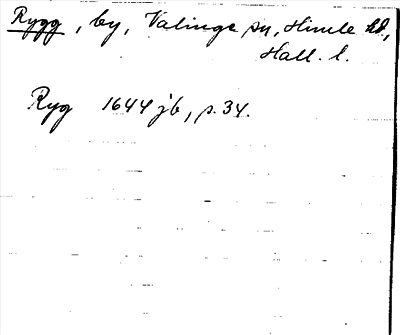 Rygg, by, Valinge sn, Himle hd,
Hall. l.
Ryg 1644 jb, s. 34.